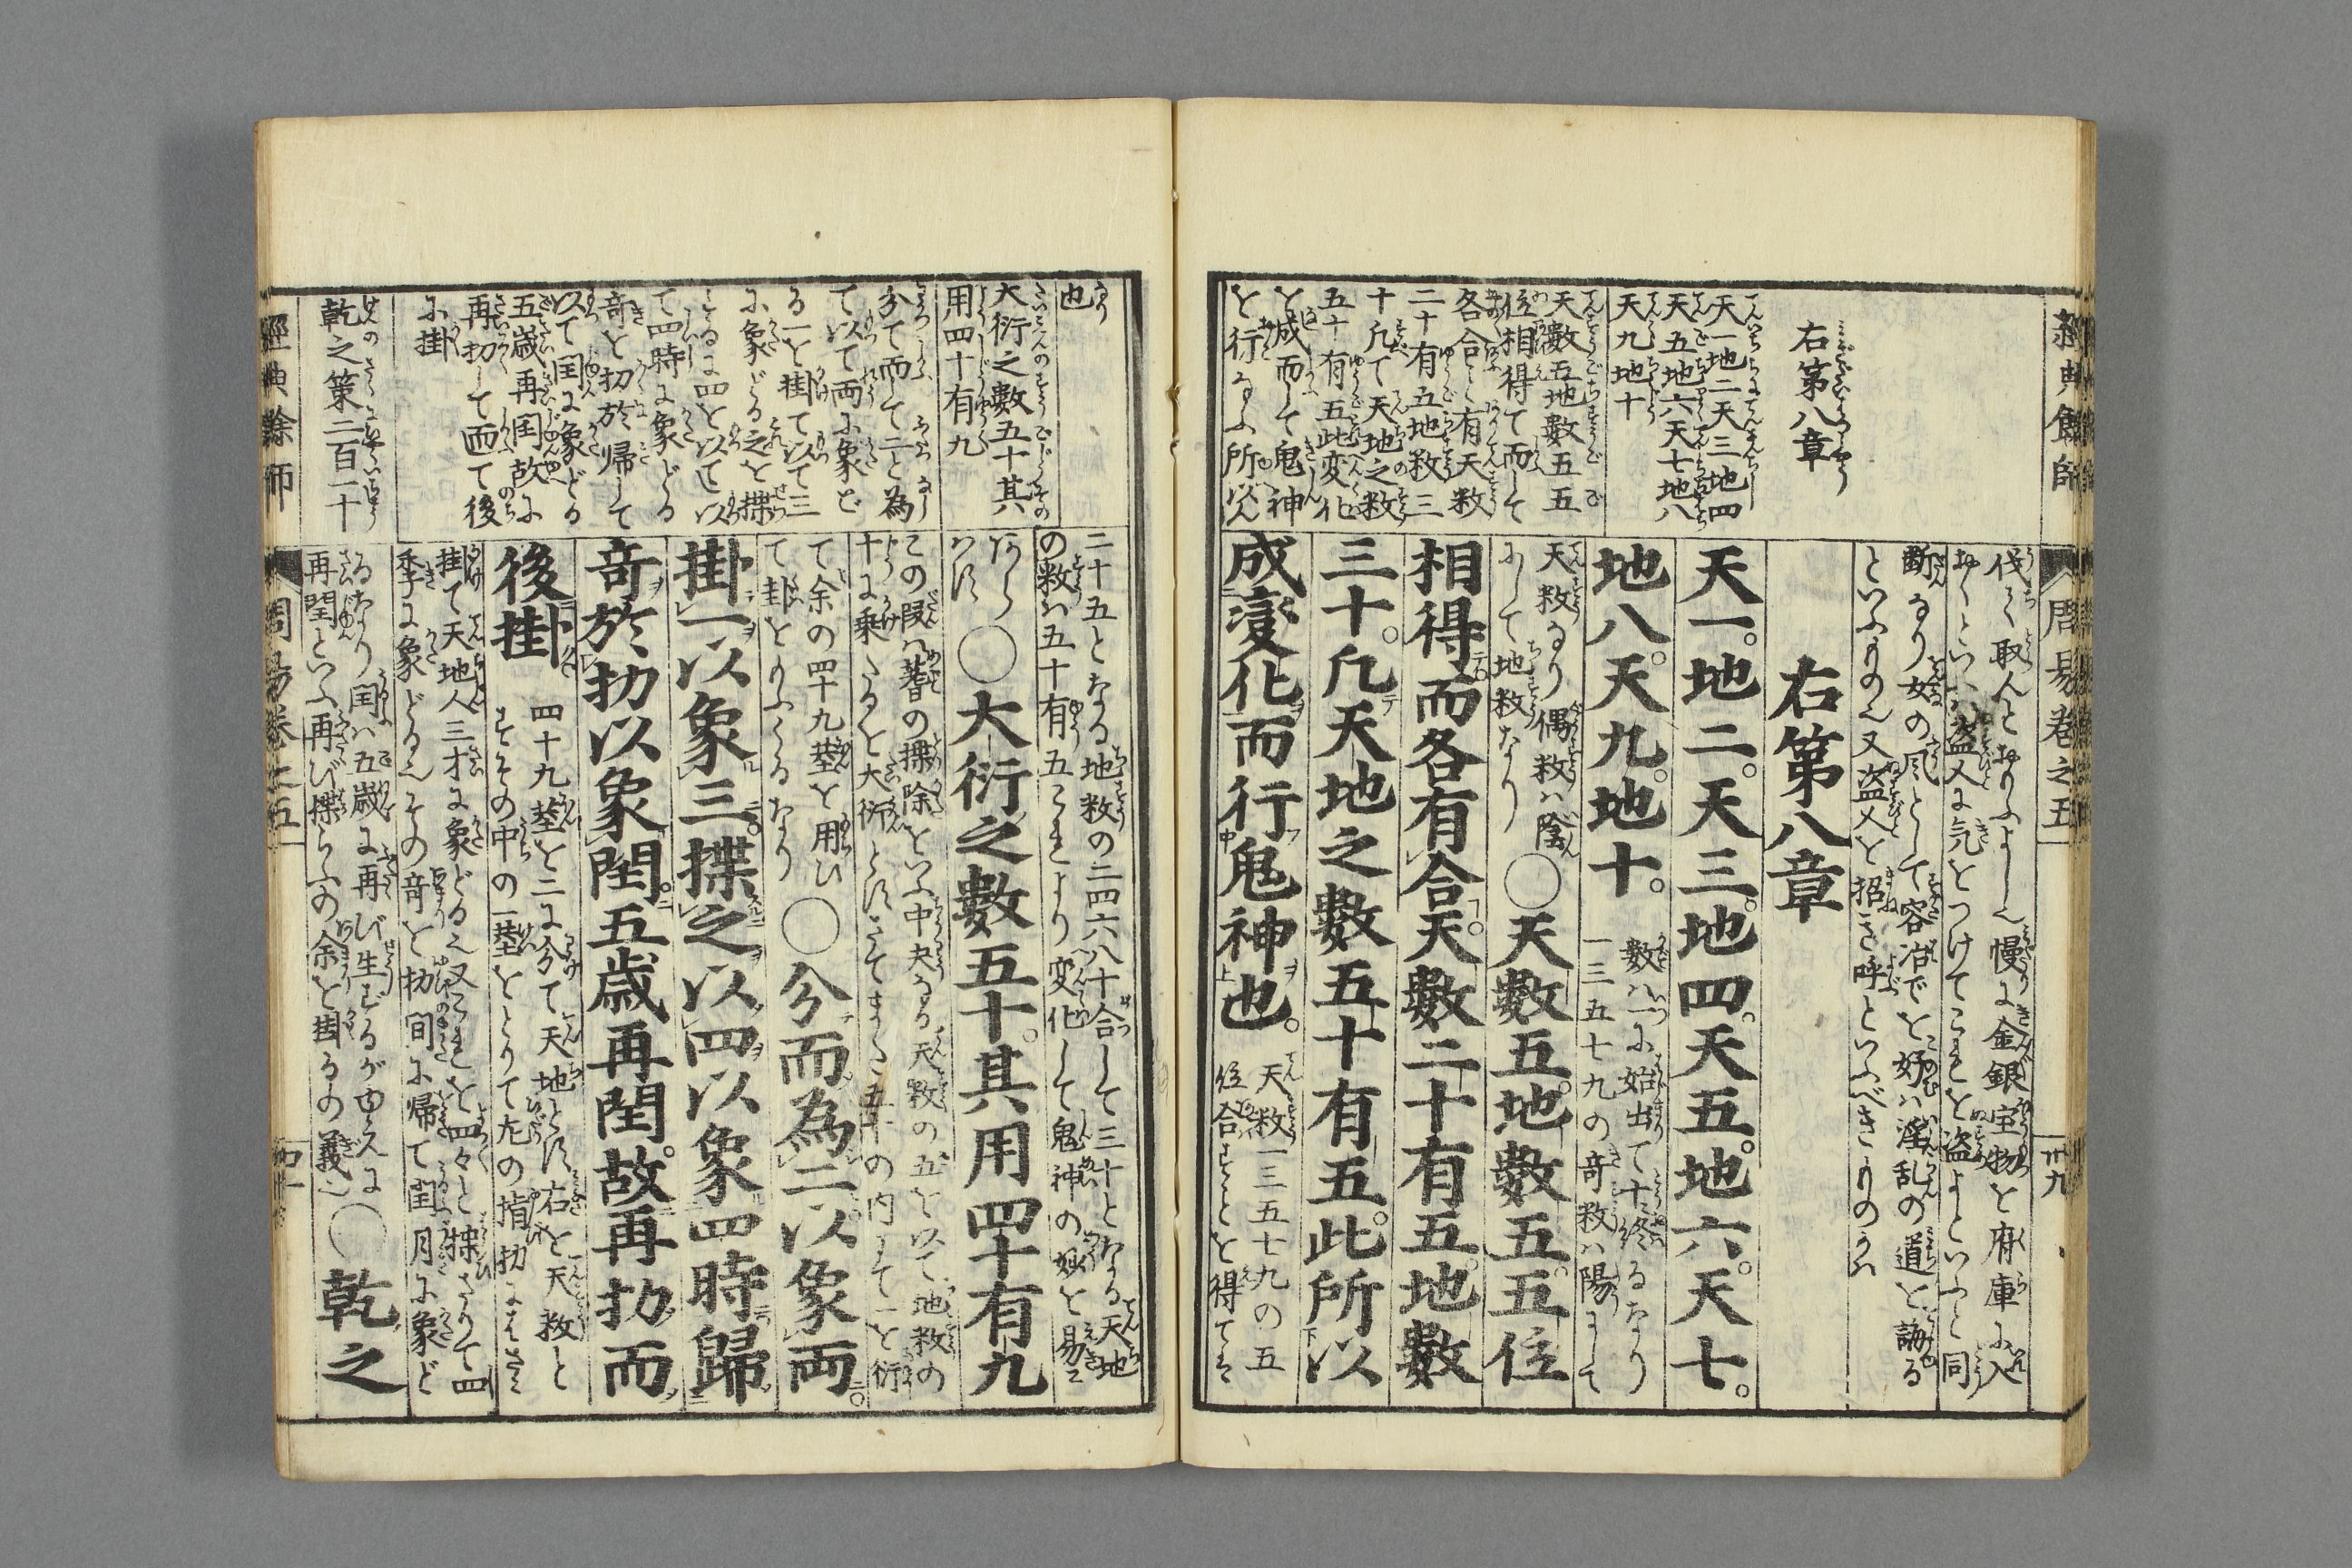 經典餘師
周易卷之五
卅九
右第八章
天一地二天三地四
天五地六天七地八
天九地十
天數五地數五五
位相得て而して
各合こ有天数
二十有五地数三
十凢て天地之数
五十有五此変化
を成而して鬼神
を行なふ所以ん
伐て取んとおもふよし也慢に金銀宝物を府庫に入
おくといへバ盗人に気をつけてこれを盗よといふと同
断なり女の風として容冶でを好ハ淫乱の道を誨る
といふもの也又盗人を招き呼といふべきものなり
右第八章
天一。地二。天三。地四。天五。地六。天七。
地八。天九。地十。
數ハ一に始出て十に終るなり
一三五七九の奇数ハ陽にして
天数なり偶数ハ陰
にして地数なり
〇天數五。地數五。五位
相得而各有合。天數二十有五。地數
三十。凢天地之數五十有五。此所以
成變化而行鬼神也。
天数一三五七九の五
位合することを得て二
也
大衍之數五十其
用四十有九
分て而して二と為
て以て両に象ど
る一を掛て以て三
に象どる之を揲
するに四を以て以
て四時に象どる
奇を扐於帰して
以て閏に象どる
五歳再閏故に
再扐して而て後
に掛
乾之策二百一十
二十五となる地数の二四六八十合して三十となる天地
の数ハ五十有五これより変化して鬼神の妙を易に
〇大衍之數五十。其用四十有九
この段ハ蓍の揲除をいふ中央なる天数の五を以て地数の
十に乗たるを大衍とすさてまた五十の内にて一を衍
て余の四十九莖を用ひ
て卦をもりふくるなり
〇分而為二以象両。
掛一以象三。揲之以四以象四時歸
奇於扐以象閏。五歳再閏。故再扐而
後掛
四十九莖を二に分て天地とす右を天数と
すその中の一莖をとりて左の指扐にはさミ
掛て天地人三才に象どる也又これを四々と揲さりて四
季に象どる也その奇を扐間に帰て閏月に象ど
るなり閏ハ五歳に再び生ずるがゆへに
再閏といふ再び揲らふの余を掛るの義也
〇乾之
經典餘師
周易卷之五
四十